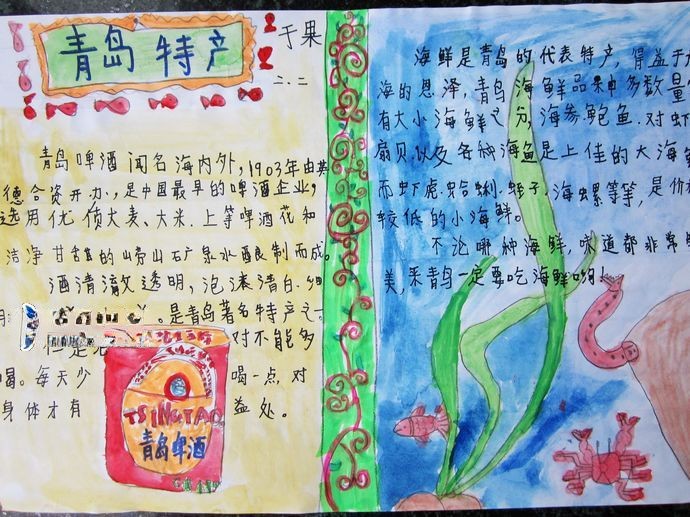 青岛 特产
于果
二.二
青岛啤酒闻名海内外，1903年由英
德合资开办，是中国最早的啤酒企业，
选用优质大麦、大米.上等啤酒花和
洁净甘甜的崂山矿泉水酿制而成。
酒清澈透明，泡沫清白.细
是青岛著名特产之
对不能多
喝。每天少
喝一点，对
身体才有
益处。
TSINGTAO
青岛啤酒
海鲜是青岛的代表特产，得益于
海的恩泽，青岛海鲜品种多数量
有大小海鲜之分，海参.鲍鱼.对虾
扇贝以及各种海鱼是上佳的大海
而虾虎.蛤蜊.蛏子.海螺等等，是价
较低的小海鲜。
不论哪种海鲜，味道都非常
美，来青岛一定要吃海鲜哟！